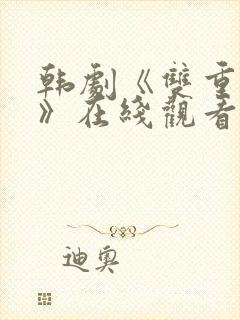 韩劇《雙重
》在綫觀看
迪奥